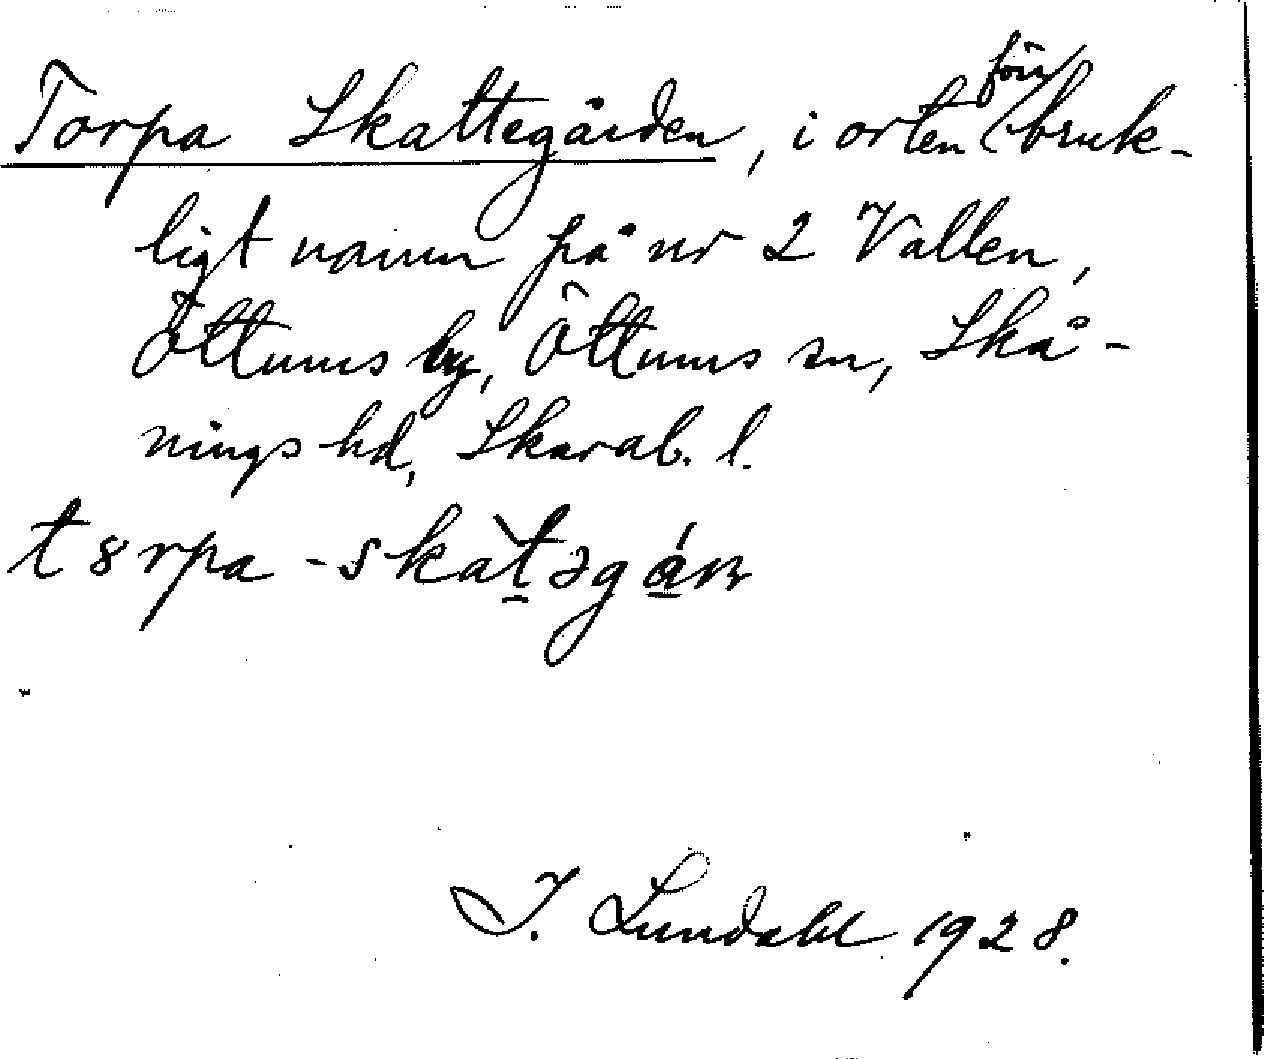 Torpa Skattegården, i orten förr bruk-
ligt namn på nr 2 Vallen,
Öttums by, Öttums sn, Skå-
nings hd, Skarab. l.
t8rpa-skàt̠əgá̠ɴ
I. Lundahl 1928.